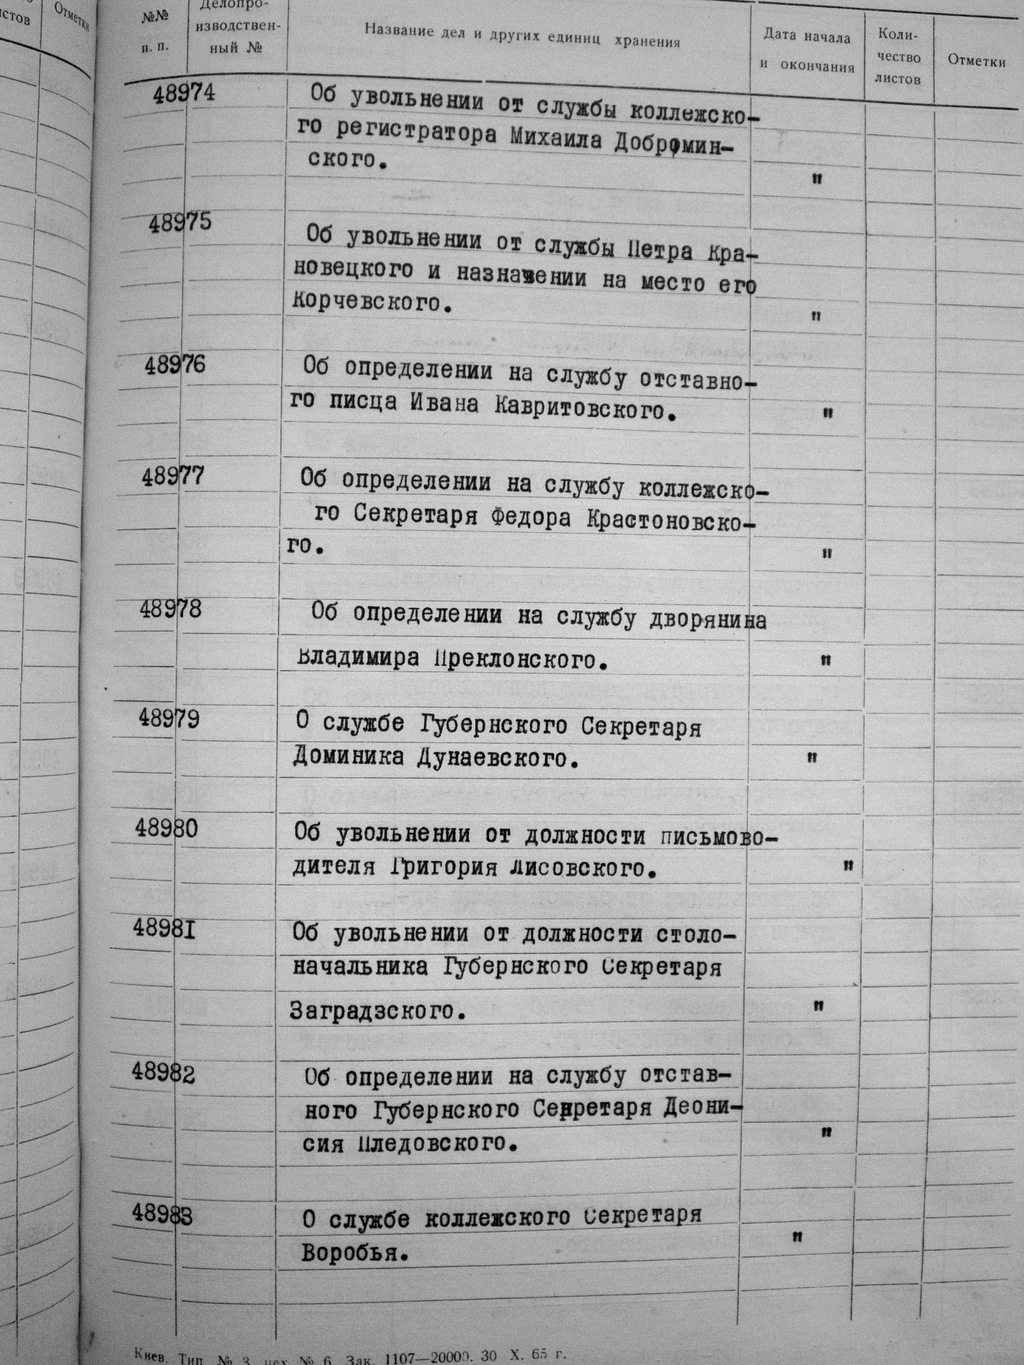 стов
Отметки
№№
п. п.
Делопро-
изводствен-
ный №
Название дел и других единиц хранения
Дата начала
и окончания
Коли-
чество
листов
Отметки
48974 Об увольнении от службы коллежско-
го регистратора Михаила Добромин-
ского. "
48975 Об увольнении от службы Петра Кра-
новецкого и назначении на место его
Корчевского. "
48976 Об определении на службу отставно-
го писца Ивана Кавритовского. "
48977 Об определении на службу коллежско-
го Секретаря Федора Крастоновско-
го. "
48978 Об определении на службу дворянина
Владимира Преклонского. "
48979 О службе Губернского Секретаря
Доминика Дунаевского. "
48980 Об увольнении от должности письмово-
дителя Григория Лисовского. "
48981 Об увольнении от должности столо-
начальника Губернского Секретаря
Заградзского. "
48982 Об определении на службу отстав-
ного Губернского Секретаря Деони-
сия Пледовского. "
48983 О службе коллежского Секретаря
Воробья. "
Киев. Тип. № 3, цех № 6. Зак. 1107—20000. 30 X. 65 г.